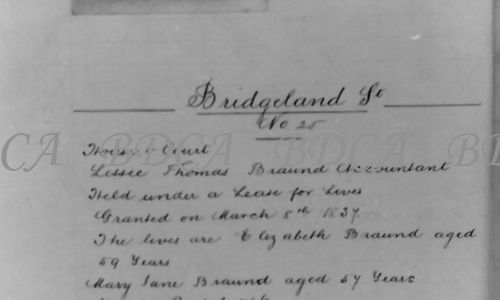 Bridgeland St
No 25
House & Court
Lessee Thomas Braund Accountant
Held under a Lease for Lives
Granted on March 8th 1837.
The lives are Elizabeth Braund aged
59 Years
Mary Jane Braund aged 57 Years
CA BDCA BDCA BD